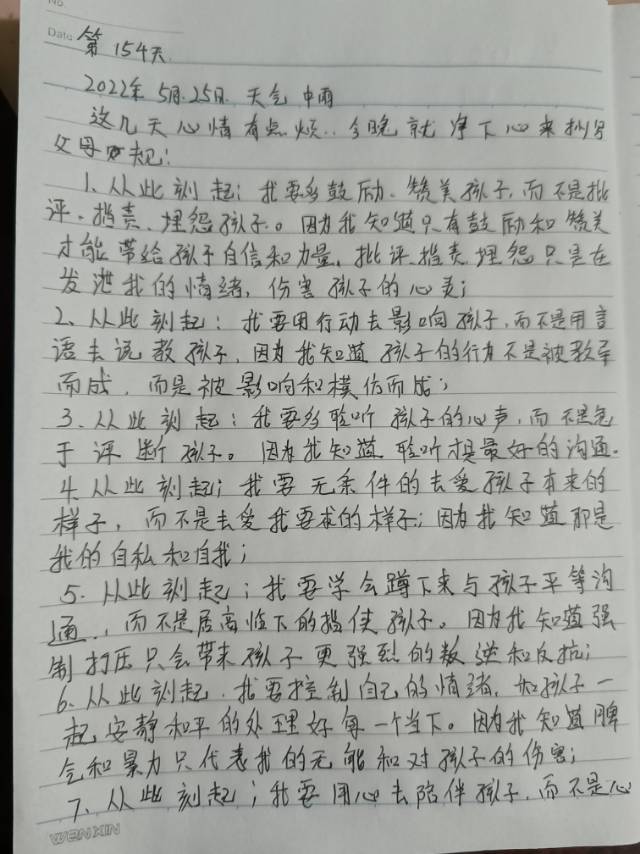 No.
Date
第154天
2022年5月.25日. 天气 中雨
这几天心情有点烦..今晚就净下心来抄写
父母规:
1、从此刻起: 我要多鼓励、赞美孩子,而不是批
评、指责、埋怨孩子。因为我知道只有鼓励和赞美
才能带给孩子自信和力量,批评.指责.埋怨只是在
发泄我的情绪,伤害孩子的心灵;
2、从此刻起: 我要用行动去影响孩子,而不是用言
语去说教孩子,因为我知道孩子的行为不是被教导
而成,而是被影响和模仿而成;
3、从此刻起: 我要多聆听孩子的心声,而不是急
于评断孩子。因为我知道聆听才是最好的沟通.
4.从此刻起; 我要无条件的去爱孩子本来的
样子,而不是去爱我要求的样子;因为我知道那是
我的自私和自我;
5.从此刻起;我要学会蹲下来与孩子平等沟
通.,而不是居高临下的指使孩子。因为我知道强
制打压只会带来孩子更强烈的叛逆和反抗;
6、从此刻起.我要控制自己的情绪,和孩子一
起安静和平的处理好每一个当下。因为我知道脾
气和暴力只代表我的无能和对孩子的伤害;
7、从此刻起;我要用心去陪伴孩子,而不是心
WENXIN